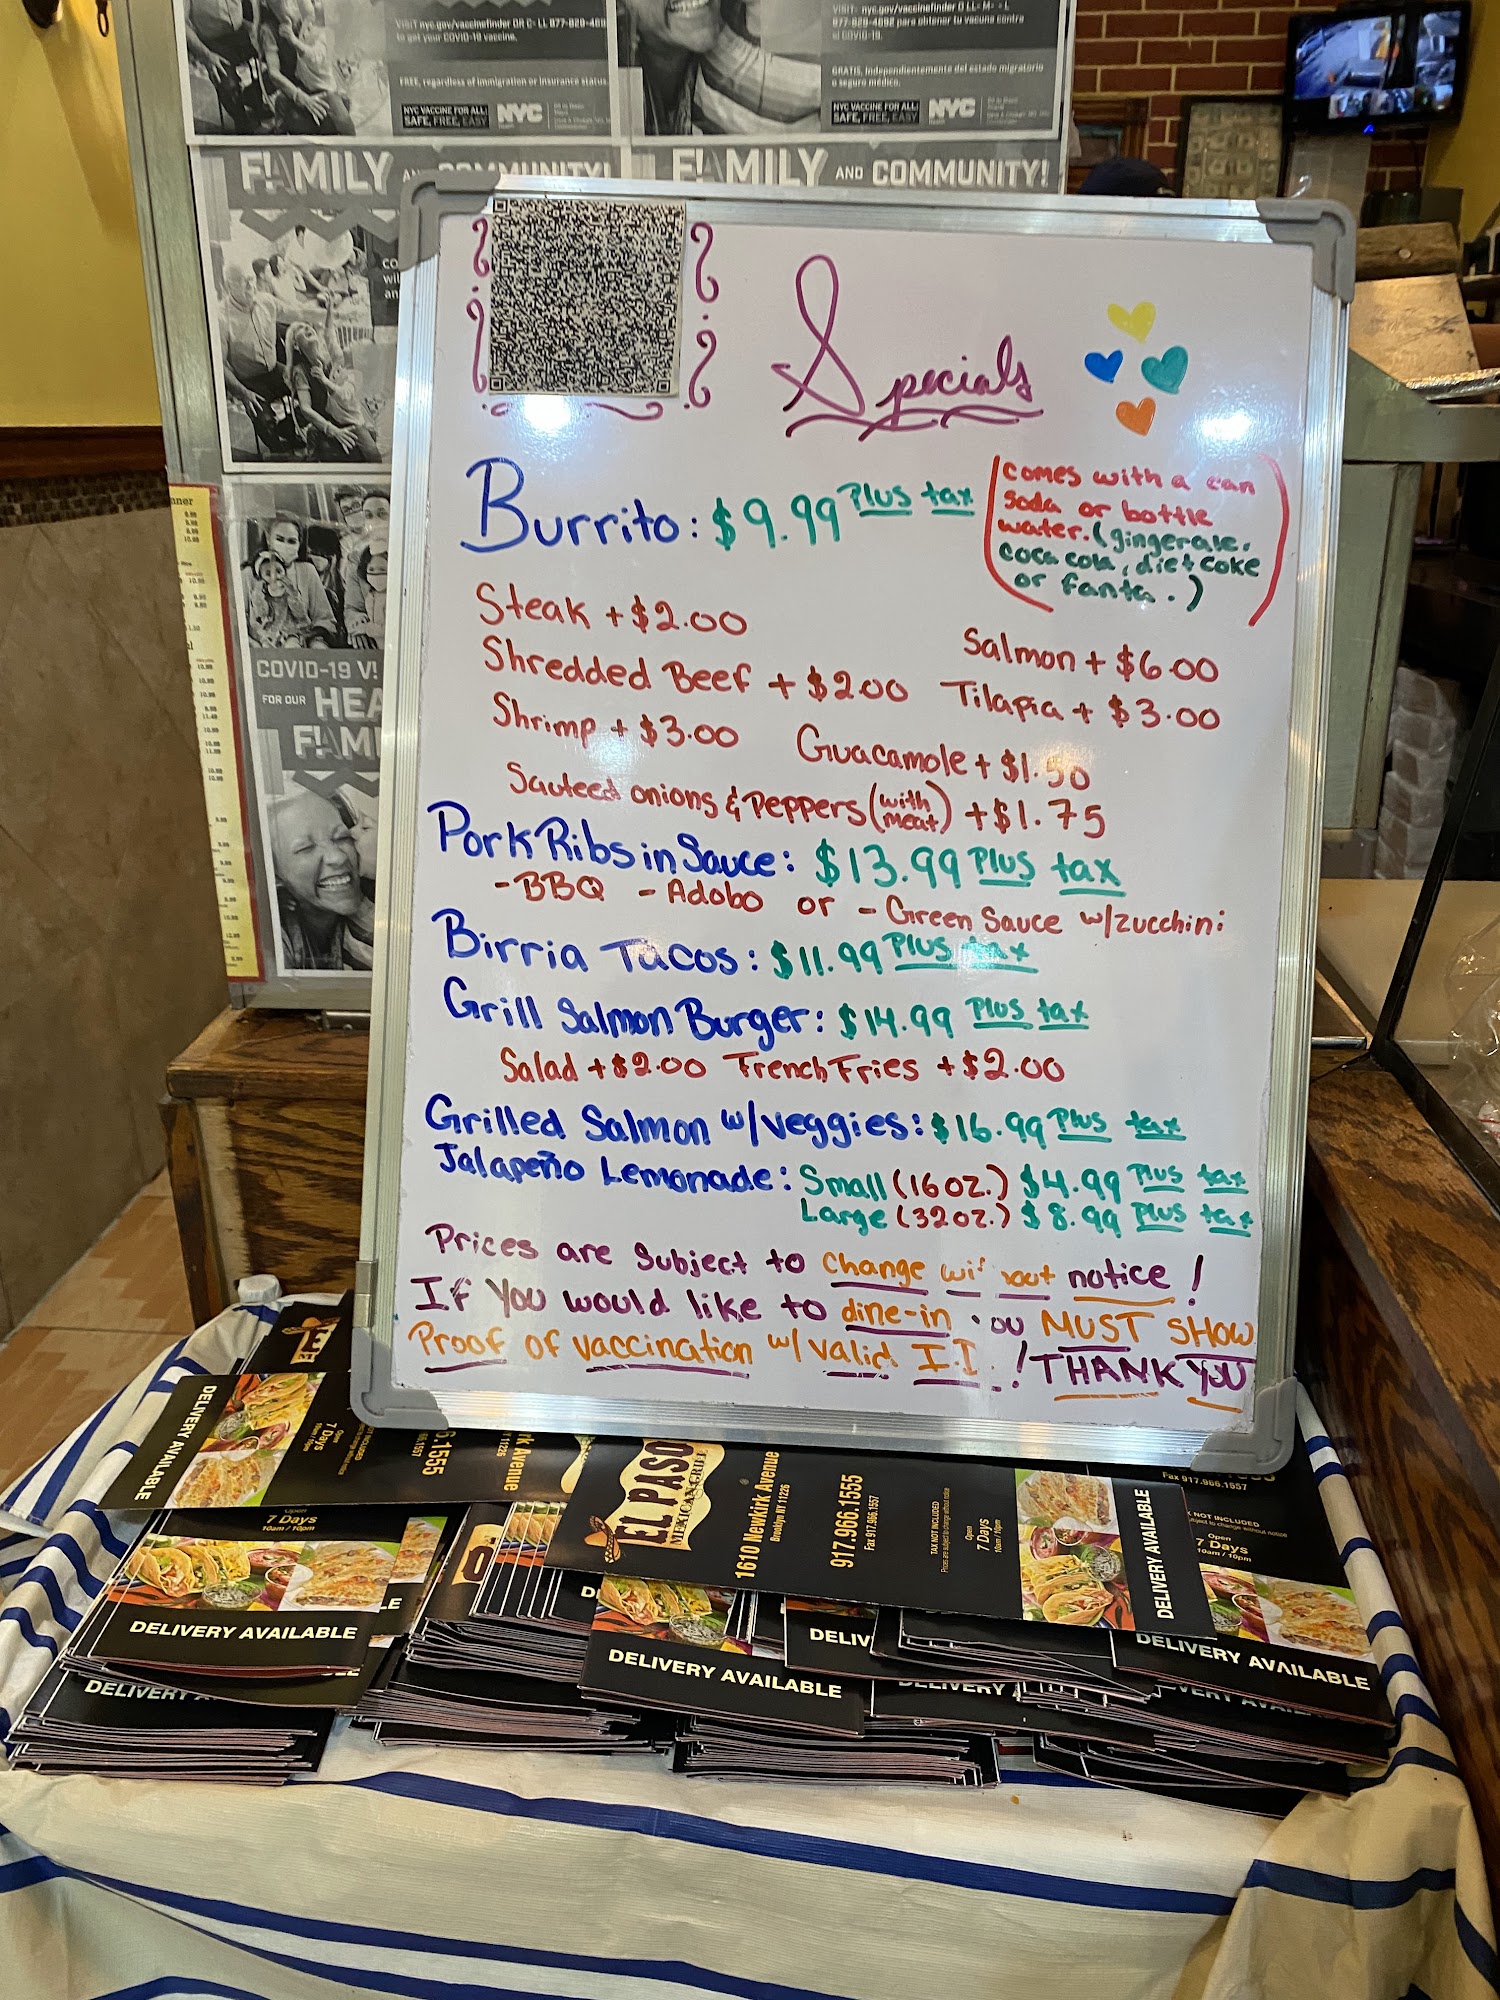 VISIT nyc.gov/vaccinefinder
to get your COVID-19 vaccine.
FREE, regardless of immigration or insurance status
NYC VACCINE FOR ALL:
SAFE, FREE, EASY
NYC
para obtener tu vacuna contra
el COVID-19.
GRATIS, independientemente del estado migratorio
o seguro médico.
NYC VACCINE FOR ALL:
SAFE, FREE, EASY
NYC
F!AMILY AND COMMUNITY!
F!AMILY AND COMMUNITY!
COVID-19 V!
FOR OUR HEA
F!AMI
Specials
Burrito: $9.99 Plus tax
(comes with a can
soda or bottle
water. (gingerale,
coca cola, diet coke
or fanta.)
Steak + $2.00
Salmon + $6.00
Shredded Beef + $2.00
Tilapia + $3.00
Shrimp + $3.00
Guacamole + $1.50
Sauteed onions & Peppers (with meat) + $1.75
Pork Ribs in Sauce: $13.99 Plus tax
-BBQ -Adobo or -Green Sauce w/zucchini
Birria Tacos: $11.99 Plus tax
Grill Salmon Burger: $14.99 Plus tax
Salad + $2.00 French Fries + $2.00
Grilled Salmon w/veggies: $16.99 Plus tax
Jalapeño Lemonade: Small (16oz.) $4.99 Plus tax
Large (32oz.) $8.99 Plus tax
Prices are subject to change notice!
If you would like to dine-in MUST SHOW
Proof of vaccination w/ valid ! THANK YOU
DELIVERY AVAILABLE
Open
7 Days
10am / 10pm
DELIVERY AVAILABLE
EL PASO
MEXICAN GRILL
1610 Newkirk Avenue
Brooklyn NY 11226
917.966.1555
Fax 917.966.1557
TAX NOT INCLUDED
Prices are subject to change without notice
Open
7 Days
10am / 10pm
DELIVERY AVAILABLE
Fax 917.966.1557
Open
7 Days
10am / 10pm
DELIVERY AVAILABLE
DELIVERY AVAILABLE